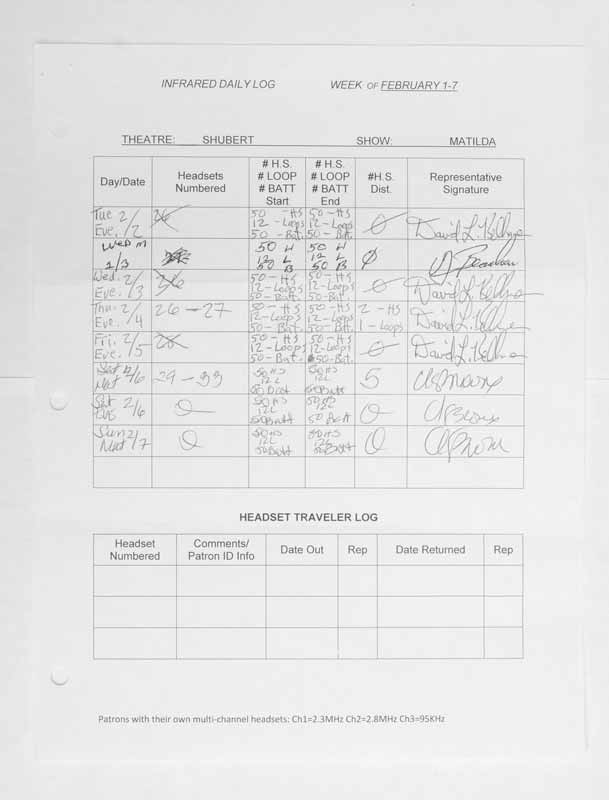 INFRARED DAILY LOG WEEK OF FEBRUARY 1-7
THEATRE: SHUBERT SHOW: MATILDA
Day/Date
Headsets
Numbered
# H.S.
# LOOP
# BATT
Start
# H.S.
# LOOP
# BATT
End
#H.S.
Dist.
Representative
Signature
Tue 2/
Eve. /2
26
50 - HS
12 - Loops
50 - Bat.
50 - HS
12 - Loops
50 - Bat.
0
David L.
Wed M
2/3
50 H
12 L
50 B
50 H
12 L
50 B
0
Wed. 2/
Eve. /3
26
50 - HS
12 - Loops
50 - Batt.
50 - HS
12 - Loops
50 - Bat.
0
David L.
Thu. 2/
Eve. /4
26 - 27
50 - HS
12 - Loops
50 - Bat.
50 - HS
12 - Loops
50 - Bat.
2 - HS
1 - Loops
David L.
Fri. 2/
Eve. /5
50 - HS
12 - Loops
50 - Batt.
50 - HS
12 - Loops
50 - Bat.
0
David L.
Sat 2/6
Mat
29 - 33
50 HS
12 L
50 Batt
50 HS
12 L
50 Batt
5
Sat 2/6
Eve
0
50 HS
12 L
50 Batt
50 HS
12 L
50 Batt
0
Sun 2/7
Mat
0
50 HS
12 L
50 Batt
50 HS
12 L
50 Batt
0
HEADSET TRAVELER LOG
Headset
Numbered
Comments/
Patron ID Info
Date Out
Rep
Date Returned
Rep
Patrons with their own multi-channel headsets: Ch1=2.3MHz Ch2=2.8MHz Ch3=95KHz